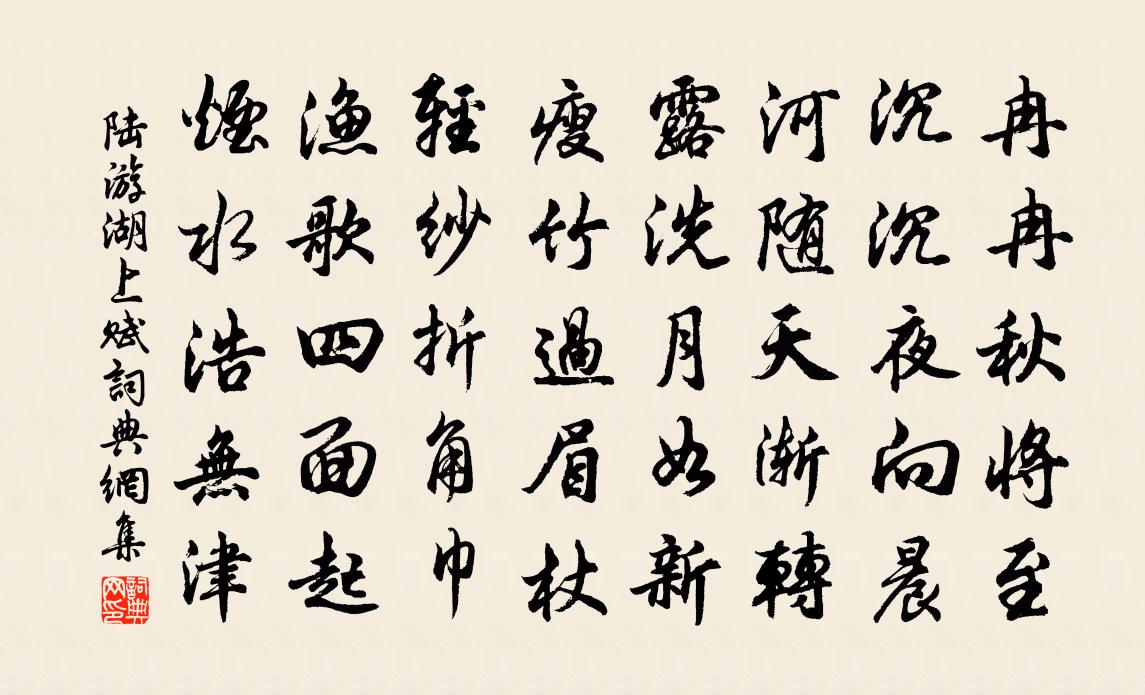 冉冉秋將至
沉沉夜向晨
河随天渐轉
露洗月如新
瘦竹過眉杖
輕紗折角巾
漁歌四面起
煙水浩無津
陆游湖上赋詞典網集
詞典網印